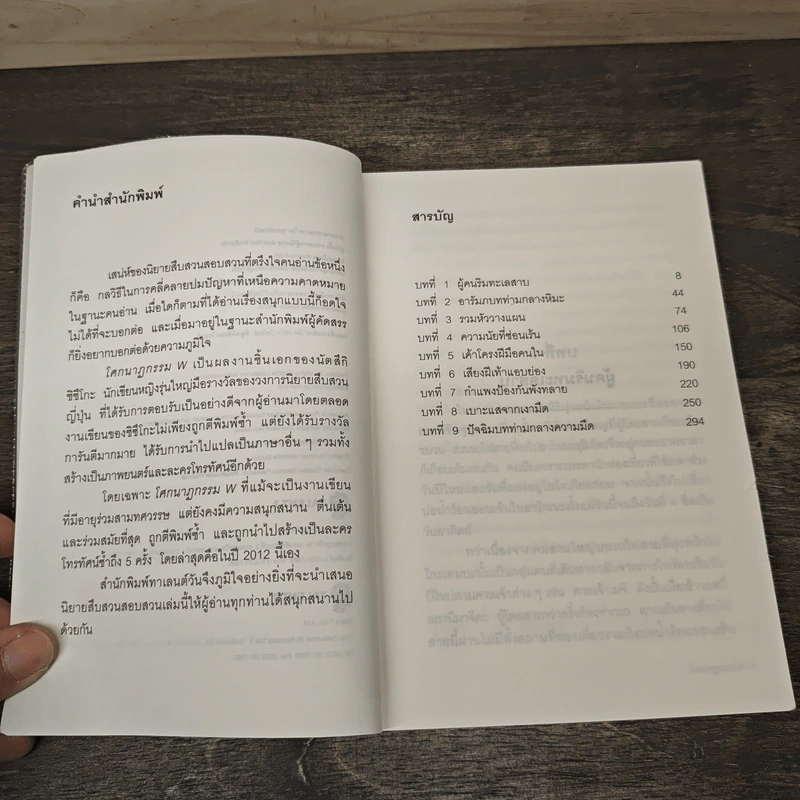 คำนำสำนักพิมพ์
เสน่ห์ของนิยายสืบสวนสอบสวนที่ตรึงใจคนอ่านข้อหนึ่ง
ก็คือ กลวิธีในการคลี่คลายปมปัญหาที่เหนือความคาดหมาย
ในฐานะคนอ่าน เมื่อใดก็ตามที่ได้อ่านเรื่องสนุกแบบนี้ก็อดใจ
ไม่ได้ที่จะบอกต่อ และเมื่อมาอยู่ในฐานะสำนักพิมพ์ผู้คัดสรร
ก็ยิ่งอยากบอกต่อด้วยความภูมิใจ
โศกนาฏกรรม W เป็นผลงานชิ้นเอกของนัตสึกิ
ชิซึโกะ นักเขียนหญิงรุ่นใหญ่มือรางวัลของวงการนิยายสืบสวน
ญี่ปุ่น ที่ได้รับการตอบรับเป็นอย่างดีจากผู้อ่านมาโดยตลอด
งานเขียนของชิซึโกะไม่เพียงถูกตีพิมพ์ซ้ำ แต่ยังได้รับรางวัล
การันตีมากมาย ได้รับการนำไปแปลเป็นภาษาอื่น ๆ รวมทั้ง
สร้างเป็นภาพยนตร์และละครโทรทัศน์อีกด้วย
โดยเฉพาะ โศกนาฏกรรม W ที่แม้จะเป็นงานเขียน
ที่มีอายุร่วมสามทศวรรษ แต่ยังคงมีความสนุกสนาน ตื่นเต้น
และร่วมสมัยที่สุด ถูกตีพิมพ์ซ้ำ และถูกนำไปสร้างเป็นละคร
โทรทัศน์ซ้ำถึง 5 ครั้ง โดยล่าสุดคือในปี 2012 นี้เอง
สำนักพิมพ์ทาเลนต์วันจึงภูมิใจอย่างยิ่งที่จะนำเสนอ
นิยายสืบสวนสอบสวนเล่มนี้ให้ผู้อ่านทุกท่านได้สนุกสนานไป
ด้วยกัน
สารบัญ
บทที่ 1 ผู้คนริมทะเลสาบ 8
บทที่ 2 อารัมภบทท่ามกลางหิมะ 44
บทที่ 3 รวมหัววางแผน 74
บทที่ 4 ความนัยที่ซ่อนเร้น 106
บทที่ 5 เค้าโครงฝีมือคนใน 150
บทที่ 6 เสียงฝีเท้าแอบย่อง 190
บทที่ 7 กำแพงป้องกันพังทลาย 220
บทที่ 8 เบาะแสจากเงามืด 250
บทที่ 9 ปัจฉิมบทท่ามกลางความมืด 294